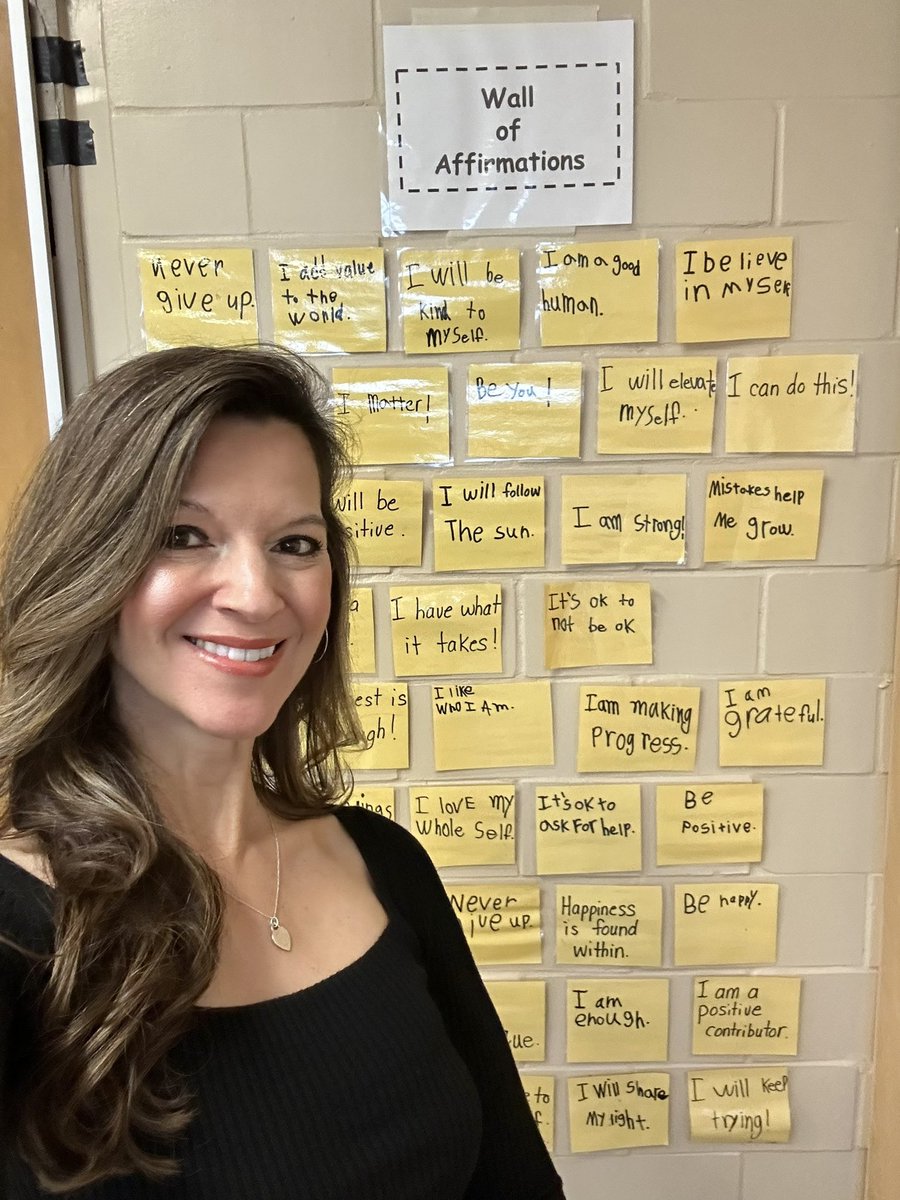 Wall
of
Affirmations
never
give up.
I add value
to the
world.
I will be
kind to
myself.
I am a good
human.
I believe
in myself
I matter!
Be you!
I will elevate
myself.
I can do this!
will be
sitive.
I will follow
The sun.
I am strong!
Mistakes help
Me grow.
a
I have what
it takes!
It's ok to
not be ok
est is
gh!
I like
who I Am.
I am making
Progress.
I am
grateful.
ings
I love my
whole self.
It's ok to
ask for help.
Be
Positive.
Never
ive up.
Happiness
is found
within.
Be happy.
ue.
I am
enough.
I am a
positive
contributor.
e to
f.
I will share
my light.
I will keep
trying!